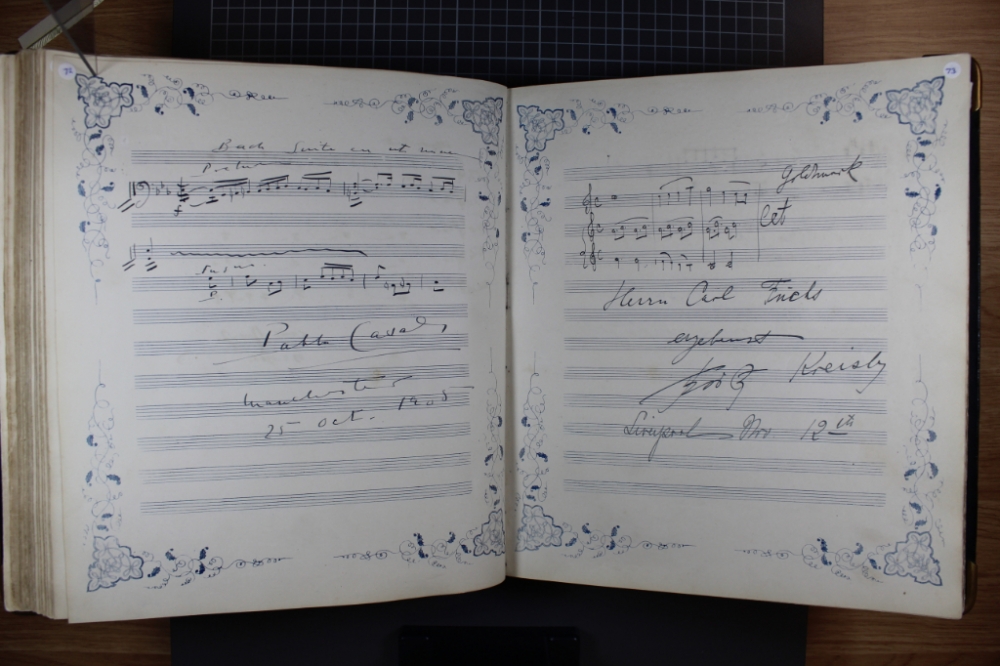 72
Bach Suite en ut mineur
Prelude
f
Fugue
p
Pablo Casals
Manchester
25 Oct. 1905
73
Goldmark
Herrn Carl Fuchs
ergebenst
Fritz Kreisler
Liverpool Nov. 12th